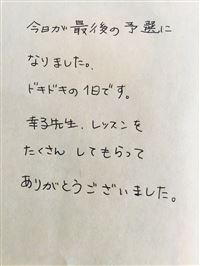 今日が最後の予選に
なりました。
ドキドキの1日です。
幸子先生、レッスンを
たくさん してもらって
ありがとうございました。